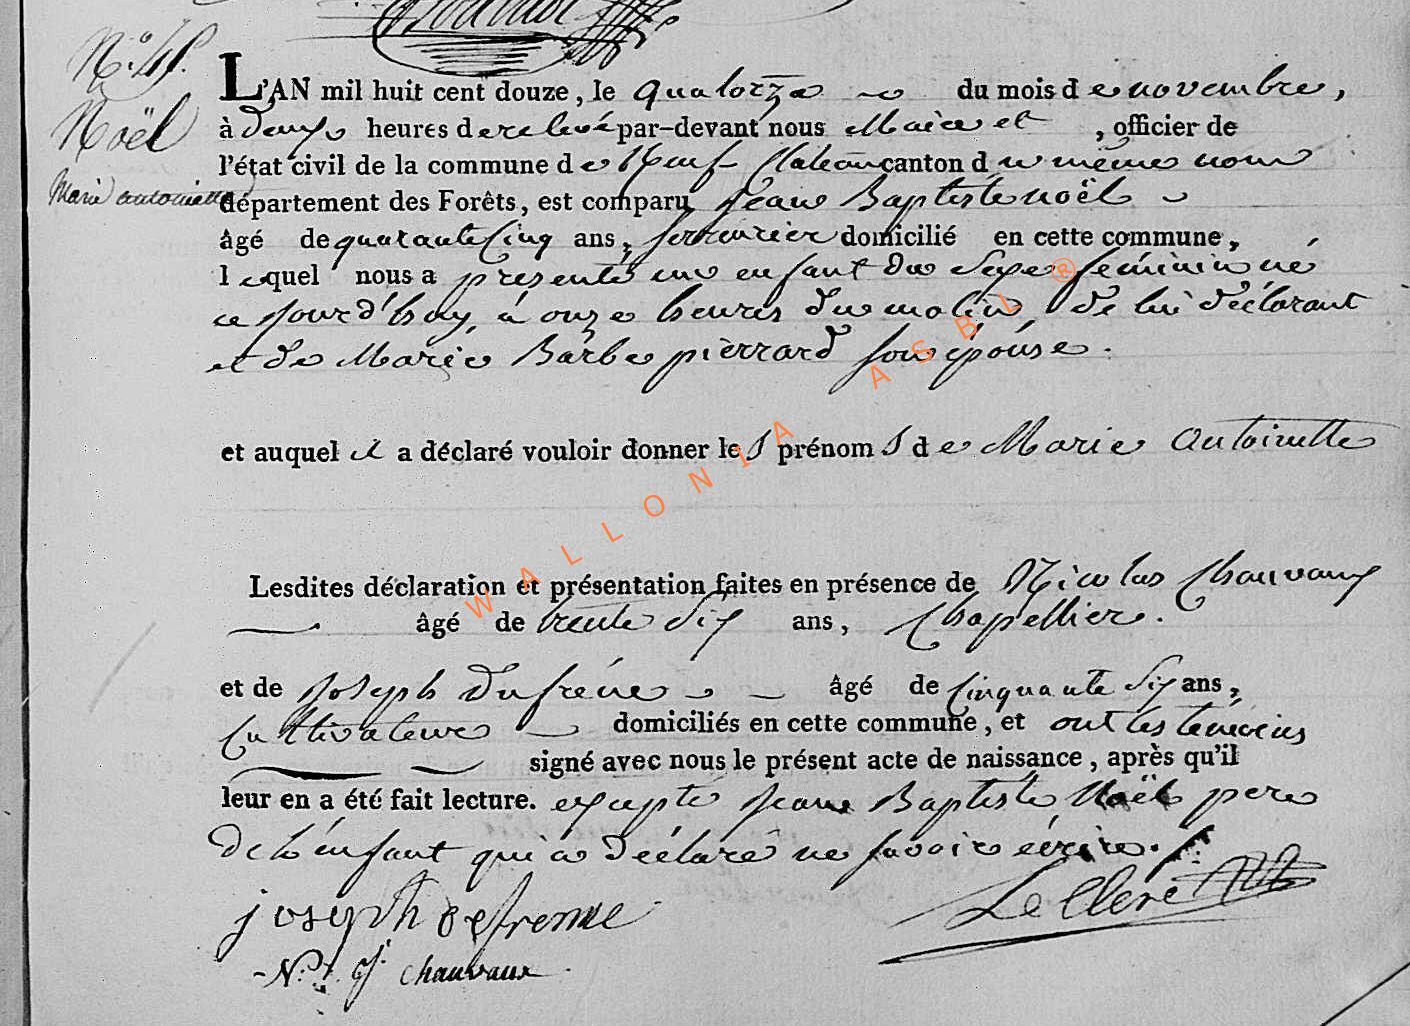 N.° 45.
Noël
Marie antoinette
L'AN mil huit cent douze, le quatorze du mois de novembre,
à deux heures de relevé par-devant nous Maire et , officier de
l'état civil de la commune de Neufchateau canton du même nom
département des Forêts, est comparu Jean Baptiste noël
âgé de quarante cinq ans, serrurier domicilié en cette commune,
lequel nous a presenté un enfant du sexe feminin né
ce jourd'huy, à onze heures du matin, de lui déclarant
et de Marie Barbe pierrard son épouse.
et auquel il a déclaré vouloir donner les prénoms de Marie Antoinette
Lesdites déclaration et présentation faites en présence de Nicolas Chauvaux
âgé de trente Six ans, Chapellier.
et de Joseph Dufrène âgé de cinquante Six ans,
Cultivateur domiciliés en cette commune, et ont les temoins
signé avec nous le présent acte de naissance, après qu'il
leur en a été fait lecture. excepté Jean Baptiste Noël pere
de l'enfant qui a déclaré ne savoir écrire.
joseph defrenne
LeClerc
N. J. chauvaux
WALLONIA ASBL ®